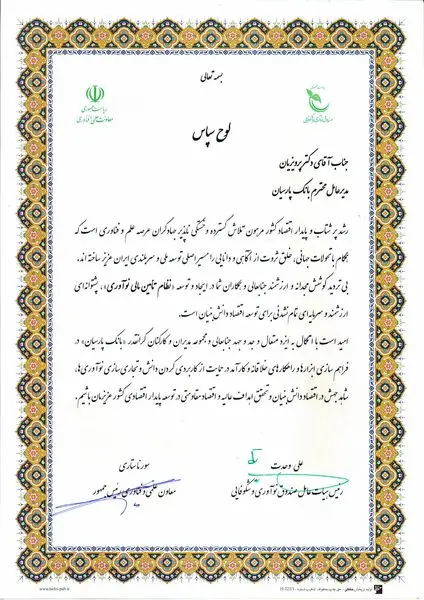 بسمه تعالی
ریاست جمهوری
معاونت علمی و فناوری
صندوق نوآوری و شکوفایی
لوح سپاس
جناب آقای دکتر پرویزیان
مدیرعامل محترم بانک پارسیان
رشد پر شتاب و پایدار اقتصاد کشور مرهون تلاش گسترده و خستگی ناپذیر جهادگران عرصه علم و فناوری است که
همگام با تحولات جهانی، خلق ثروت از آگاهی و دانایی را مسیر اصلی توسعه ملی و سربلندی ایران عزیز ساخته اند.
بی تردید کوشش مجدانه و ارزشمند جنابعالی و همکاران شما در ایجاد و توسعه «نظام تأمین مالی نوآوری»، پشتوانه ای
ارزشمند و سرمایه ای تمام نشدنی برای توسعه اقتصاد دانش بنیان است.
امید است با اتکال به ایزد متعال و جد و جهد جنابعالی و مجموعه مدیران و کارکنان گرانقدر «بانک پارسیان» در
فراهم سازی ابزارها و راهکارهای خلاقانه و کارآمد در حمایت از کاربردی کردن دانش و تجاری سازی نوآوری ها،
شاهد جهش در اقتصاد دانش بنیان و تحقق اهداف عالیه و اقتصاد مقاومتی در توسعه پایدار اقتصادی کشور عزیزمان باشیم.
علی وحدت
رئیس هیات عامل صندوق نوآوری و شکوفایی
سورنا ستاری
معاون علمی و فناوری رئیس جمهور